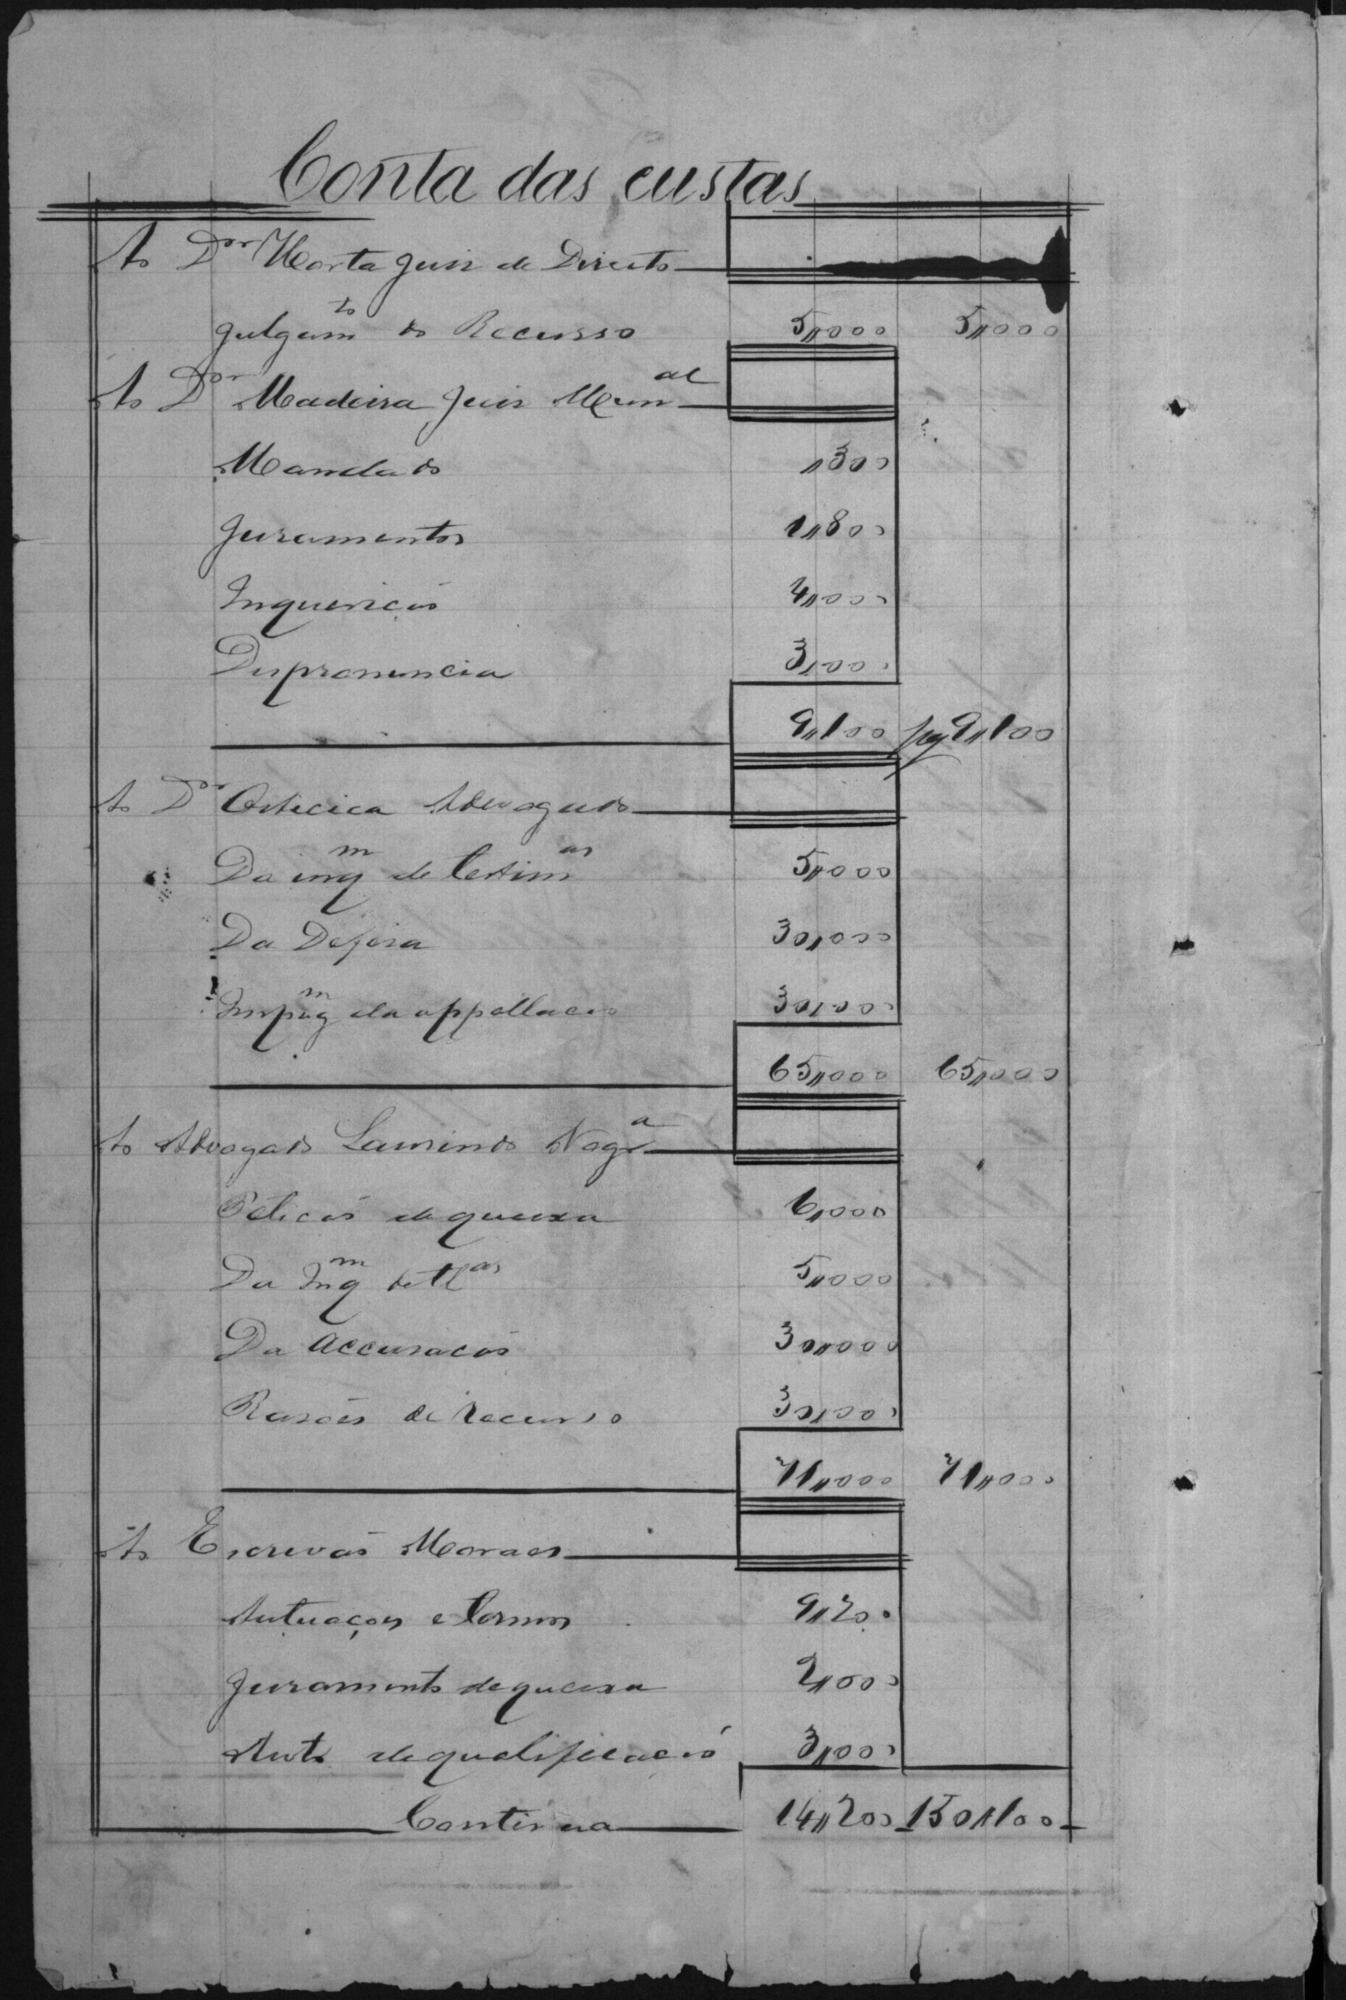 Conta das custas
Ao Dor Horta Juiz de Direito
Julgamto do Recurso 5,,000 5,,000
Ao Dor Madeira Juiz Munal
Mandado ,,300
Juramentos 1,,800
Inquirição 4,,000
Despronuncia 3,,000
9,,100 pg 9,,100
Ao Dor Advogado
Da inqm de testimas 5,,000
Da Defesa 30,,000
Impugm da appellação 30,,000
65,,000 65,,000
Ao Advogado Laurindo Nogra
Petição de queixa 6,,000
Da Inqm de tas 5,,000
Da Accusação 30,,000
Rasões de recurso 30,,000
71,,000 71,,000
Ao Escrivão Moraes
Autuações e termos 9,,200
Juramento de queixa 2,,000
Auto de qualificação 3,,000
Continua 14,,200 150,,100